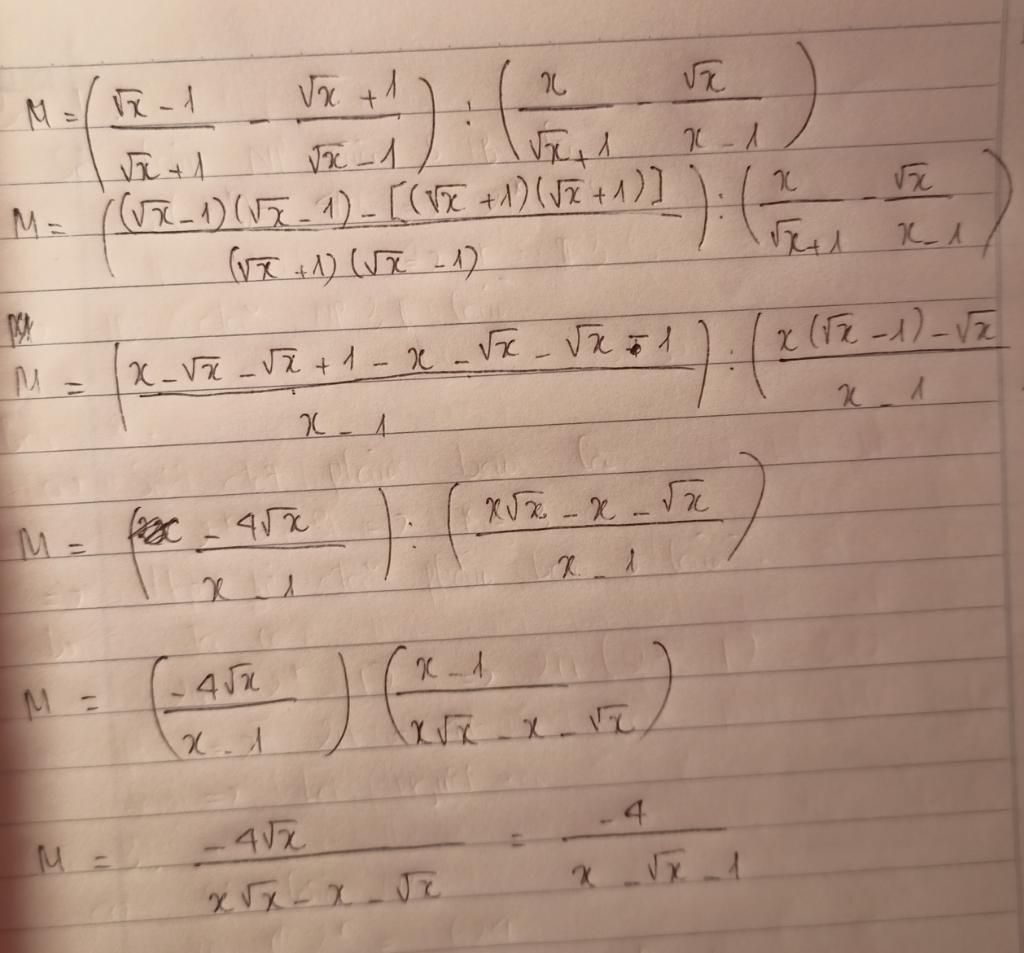 M = ( (√x - 1)/(√x + 1) - (√x + 1)/(√x - 1) ) : ( x/(√x + 1) - √x/(x - 1) )
M = ( ((√x - 1)(√x - 1) - [(√x + 1)(√x + 1)])/((√x + 1)(√x - 1)) ) : ( x/(√x + 1) - √x/(x - 1) )
M = ( (x - √x - √x + 1 - x - √x - √x - 1)/(x - 1) ) : ( (x(√x - 1) - √x)/(x - 1)
M = ( (- 4√x)/(x - 1) ) : ( (x√x - x - √x)/(x - 1) )
M = ( (- 4√x)/(x - 1) ) · ( (x - 1)/(x√x - x - √x) )
M = (- 4√x)/(x√x - x - √x) = (- 4)/(x - √x - 1)